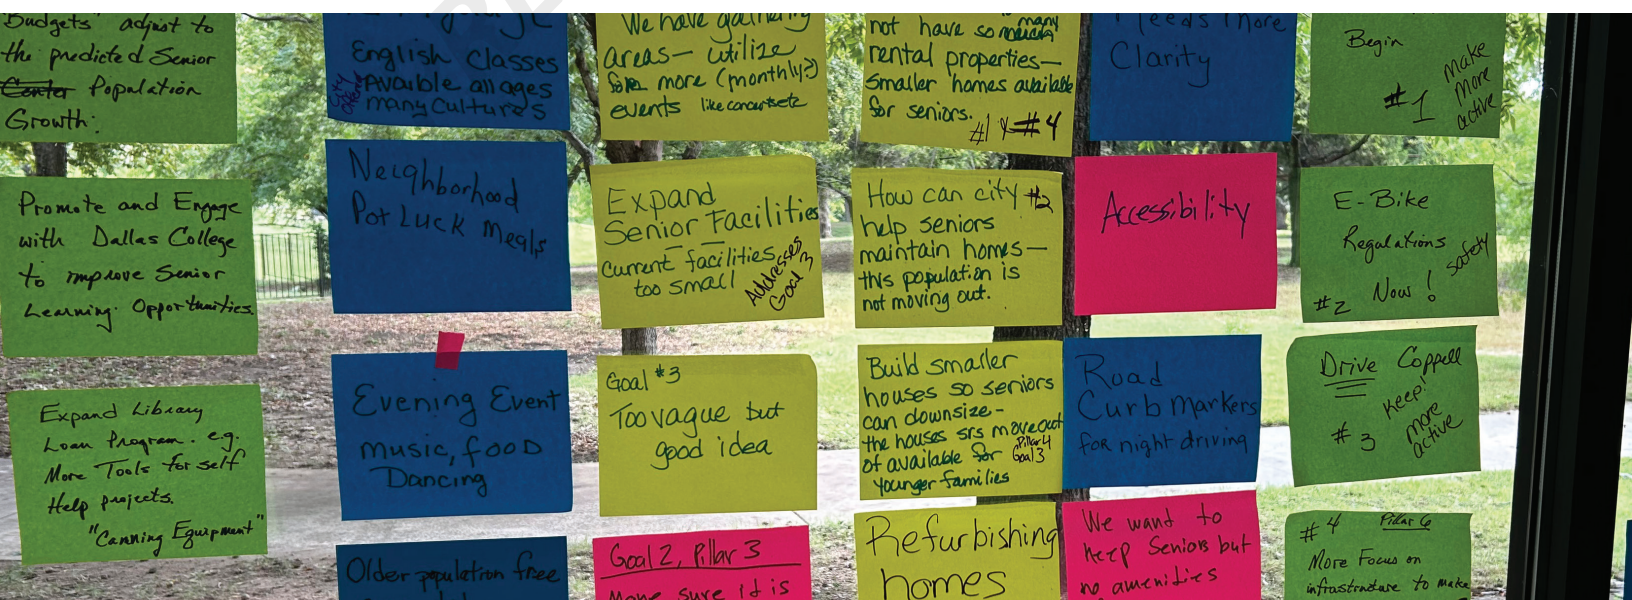 Budgets" adjust to
the predicted Senior
Center Population
Growth.
Promote and Engage
with Dallas College
to improve Senior
Learning Opportunities.
Expand Library
Loan Program. e.g.
More Tools for self
Help projects.
"Canning Equipment"
English classes
Avaible all ages
many cultures
City offered
Neighborhood
Pot Luck Meals
Evening Event
music, food
Dancing
Older population free
We have gathering
areas— utilize
for more (monthly?)
events like concerts etc
Expand
Senior Facilities
current facilities
too small
Addresses
Goal 3
Goal #3
Too vague but
good idea
Goal 2, Pillar 3
Make sure it is
not have so many
rental properties—
smaller homes available
for seniors.
#1 & #4
How can city #2
help seniors
maintain homes—
this population is
not moving out.
Build smaller
houses so seniors
can downsize-
the houses srs move out
of available for
younger families
Pillar 4
Goal 3
Refurbishing
homes
Needs more
Clarity
Accessibility
Road
Curb markers
for night driving
We want to
keep Seniors but
no amenities
Begin
#1
Make
More
active
E-Bike
Regulations
#2 Now!
safety
Drive Coppell
#3
Keep!
more
active
#4 Pillar 6
More Focus on
infrastructure to make